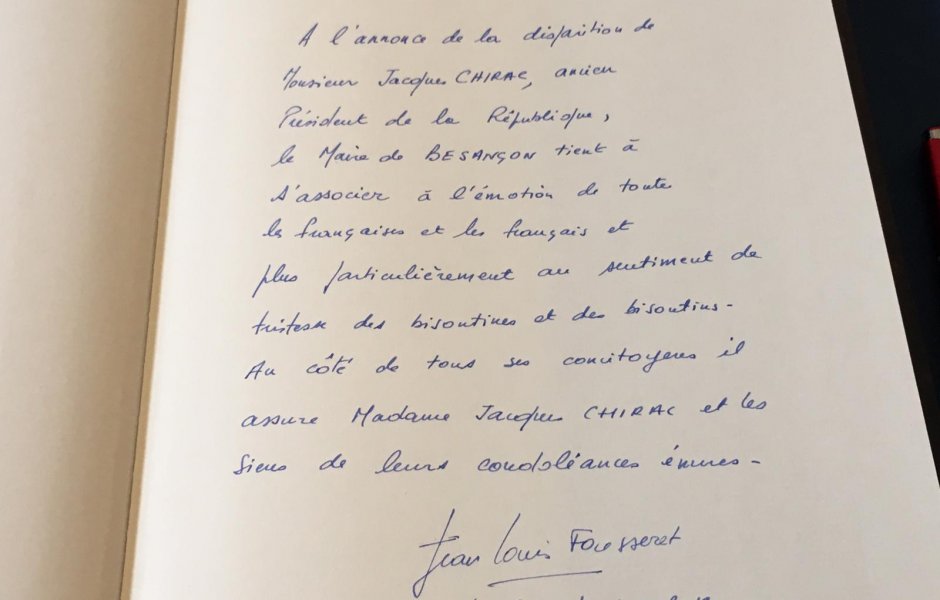 A l'annonce de la disparition de
Monsieur Jacques CHIRAC, ancien
Président de la République,
le Maire de BESANÇON tient à
s'associer à l'émotion de toute
les françaises et les français et
plus particulièrement au sentiment de
tristesse des bisontines et des bisontins -
Au côté de tous ses concitoyens il
assure Madame Jacques CHIRAC et les
siens de leurs condoléances émues -
Jean Louis Fousseret